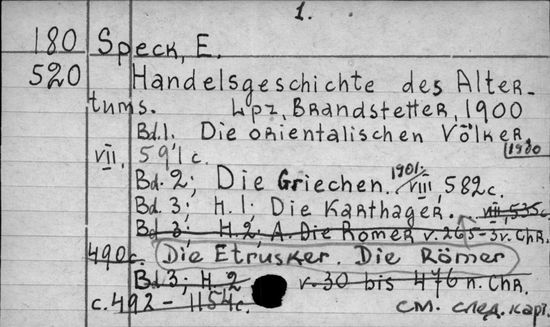 1.
180 Speck, E.
520 Handelsgeschichte des Alter-
tums. Lpz, Brandstetter, 1900
Bd.1. Die orientalischen Völker,
1900
VII, 591 с.
Bd. 2; Die Griechen. 1901. VIII, 582 с.
Bd. 3; H.1; Die Karthager. VII, 535 с.
Bd 3; H. 2; A. Die Römer v. 265-3v. Chr.
490 с. Die Etrusker. Die Römer
Bd.3; H. 2 v. 30 bis 476 n. Chr.
с. 492 - 1154 с. см. след. карт.